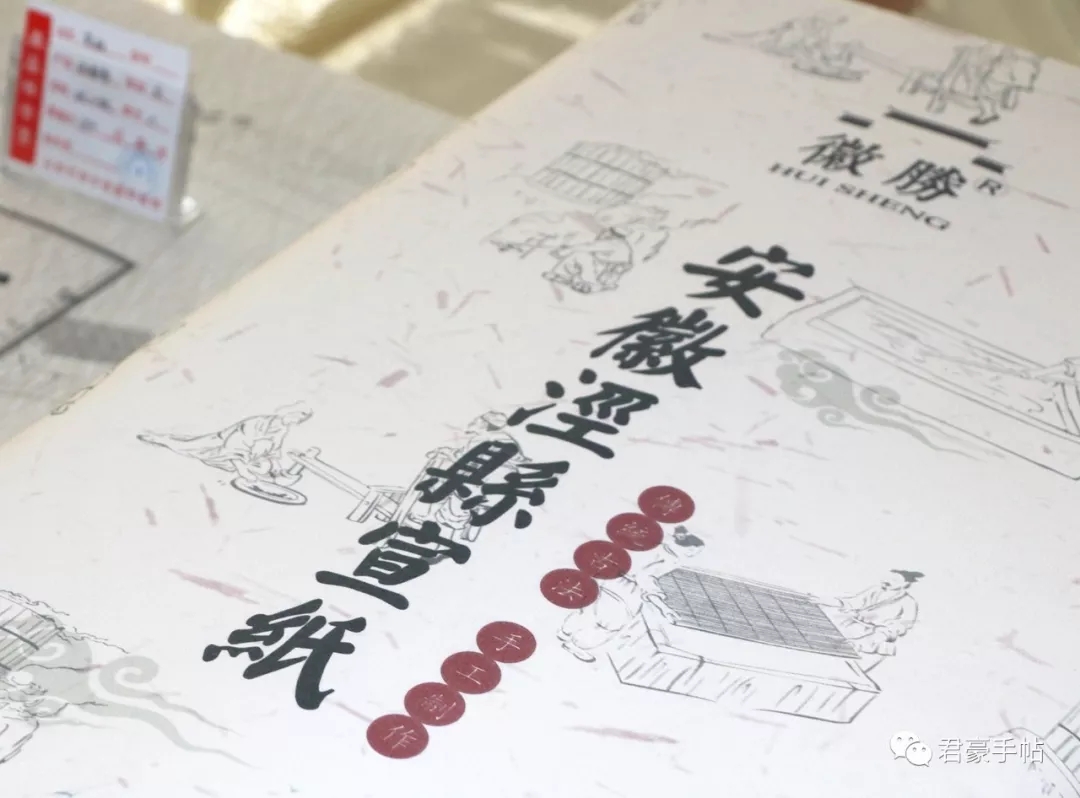 徽勝®
HUI SHENG
安徽涇縣宣紙
傳統古法
手工制作
君豪手帖